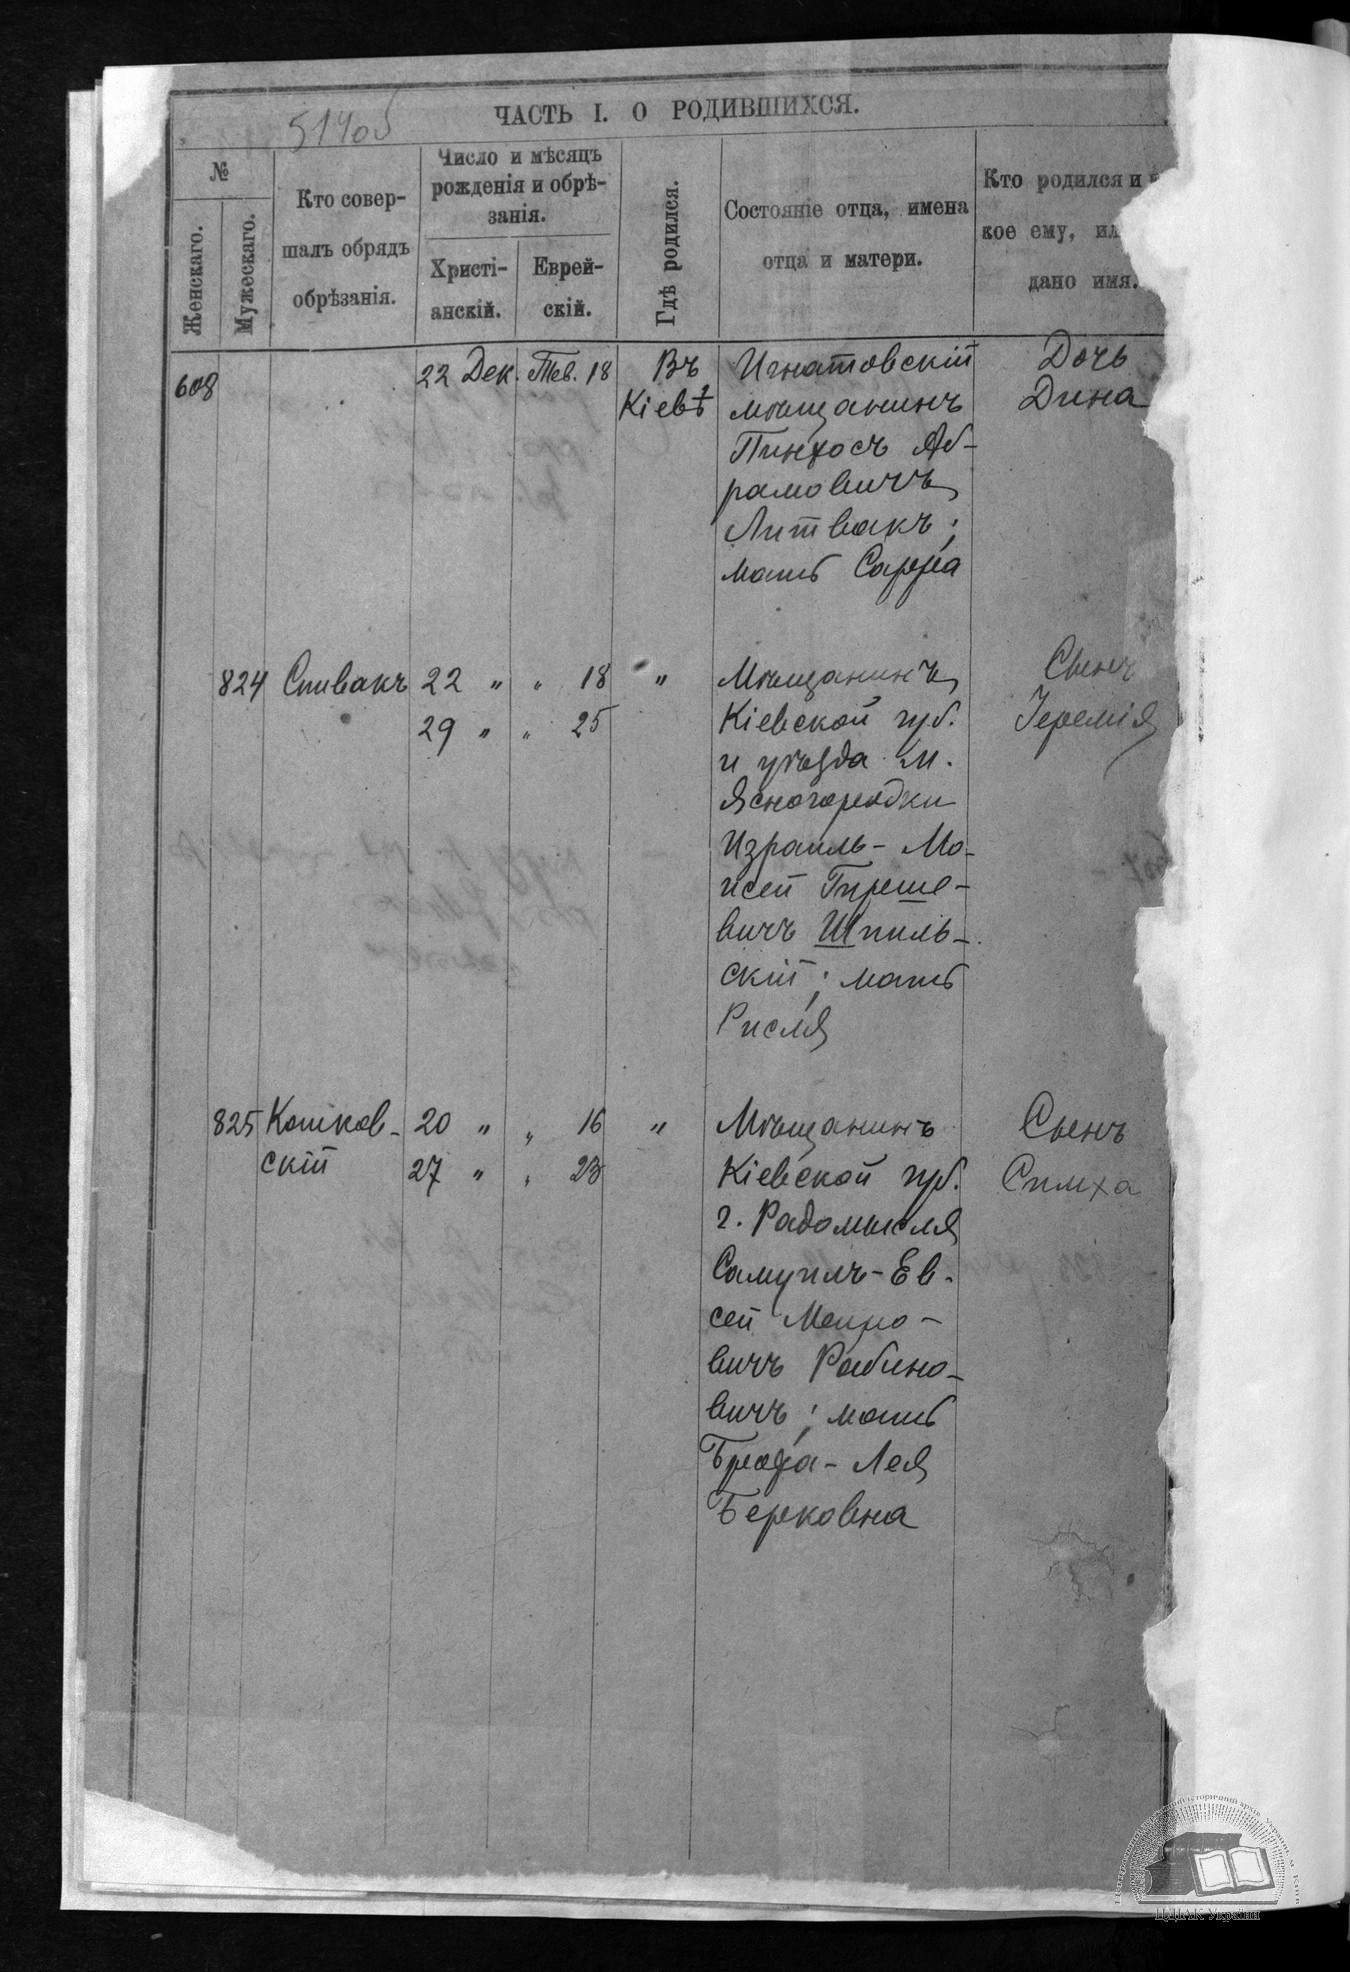 514об
ЧАСТЬ I. О РОДИВШИХСЯ.
№
Женскаго.
Мужескаго.
Кто совер-
шалъ обрядъ
обрѣзанія.
Число и мѣсяцъ
рожденія и обрѣ-
занія.
Христі-
анскій.
Еврей-
скій.
Гдѣ родился.
Состояніе отца, имена
отца и матери.
Кто родился и
кое ему, ил
дано имя.
608 22 Дек. Тев. 18 Въ Игнатовскій Дочь
Кіевѣ мѣщанинъ Дина
Пинхосъ Аб-
рамовичъ
Литвакъ;
мать Сарра
824 Спивакъ 22 " " 18 " Мѣщанинъ Сынъ
29 " " 25 Кіевской губ. Іеремія
и уѣзда м.
Ясногородки
Израиль-Мо-
исей Гирше-
вичъ Шпиль-
скій; мать
Рисля
825 Кошков- 20 " " 16 " Мѣщанинъ Сынъ
скій 27 " " 23 Кіевской губ. Симха
г. Радомысля
Самуилъ-Ев-
сей Меиро-
вичъ Рабино-
вичъ; мать
Броха-Лея
Берковна
ЦДІАК України